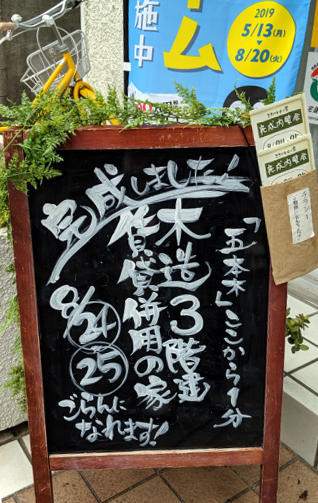 施中
ム
2019
5/13(月)
8/20(火)
完成しました!
「五本木」ここから1分
木造3階建
賃貸併用の家
8/24
25
ごらんに
なれます!
完成内覧会
完成内覧会
チラシ